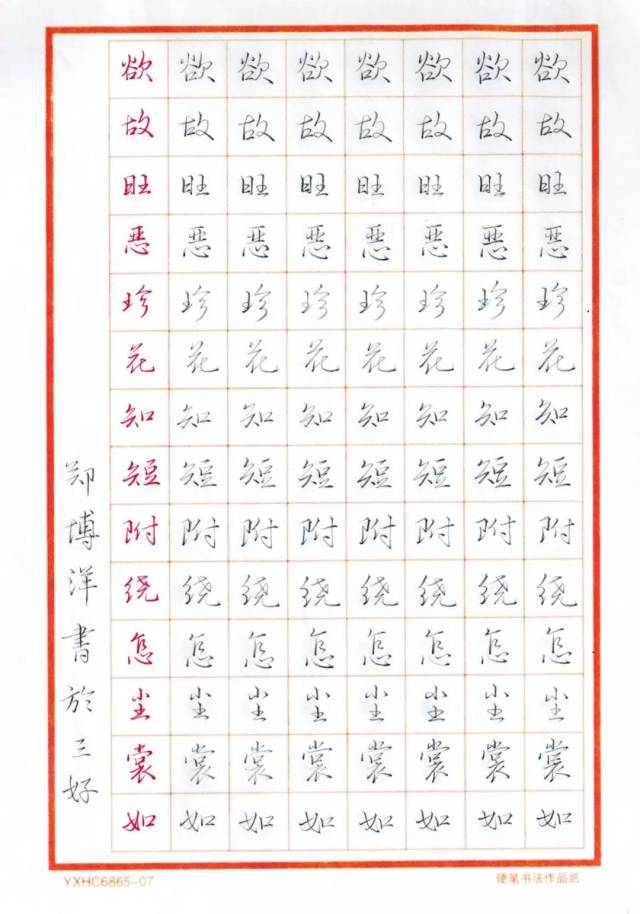 欲欲欲欲欲欲欲欲
故故故故故故故故
旺旺旺旺旺旺旺旺
恶恶恶恶恶恶恶恶
珍珍珍珍珍珍珍珍
花花花花花花花花
知知知知知知知知
短短短短短短短短
附附附附附附附附
绕绕绕绕绕绕绕绕
怎怎怎怎怎怎怎怎
尘尘尘尘尘尘尘尘
裳裳裳裳裳裳裳裳
如如如如如如如如
郑博洋書於三好
YXHC6865-07
硬笔书法作品纸